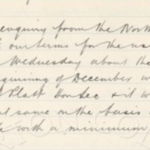 enquiring from the Work
our terms for the use
Wednesday about the
beginning of December
Platt Hon Sec
same on the basis of
with a minimum